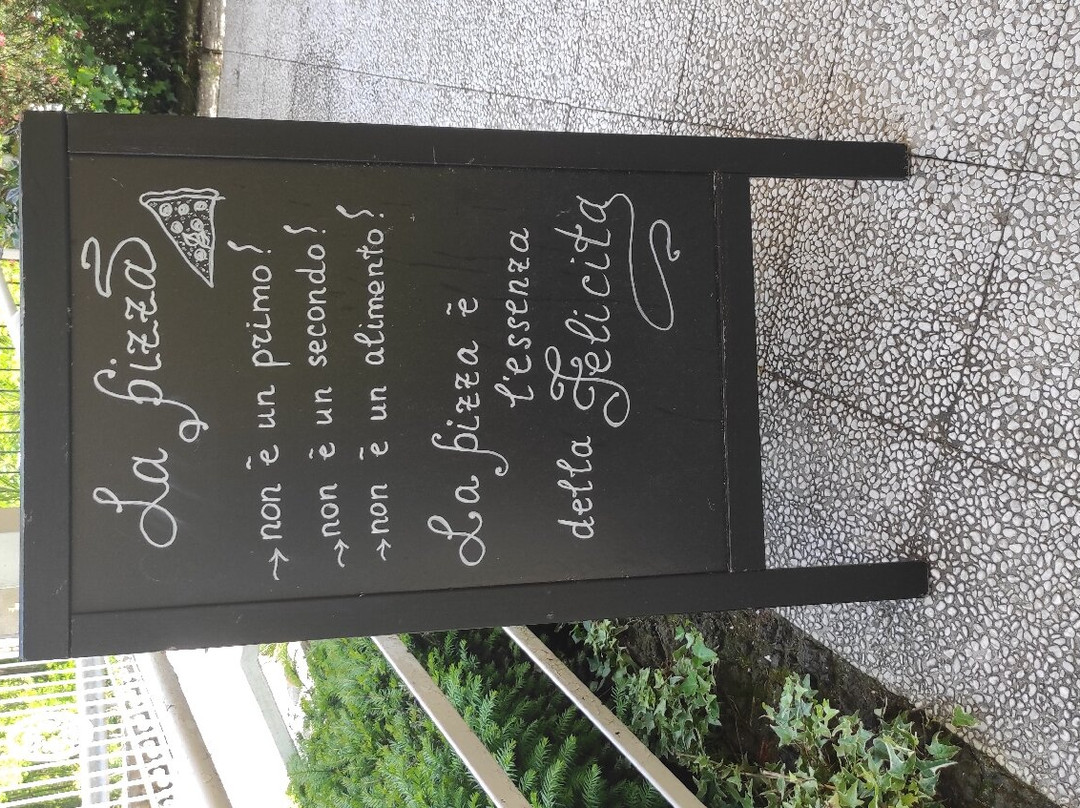 La pizza
→ non è un primo!
→ non è un secondo!
→ non è un alimento!
La pizza è
l'essenza
della Felicità